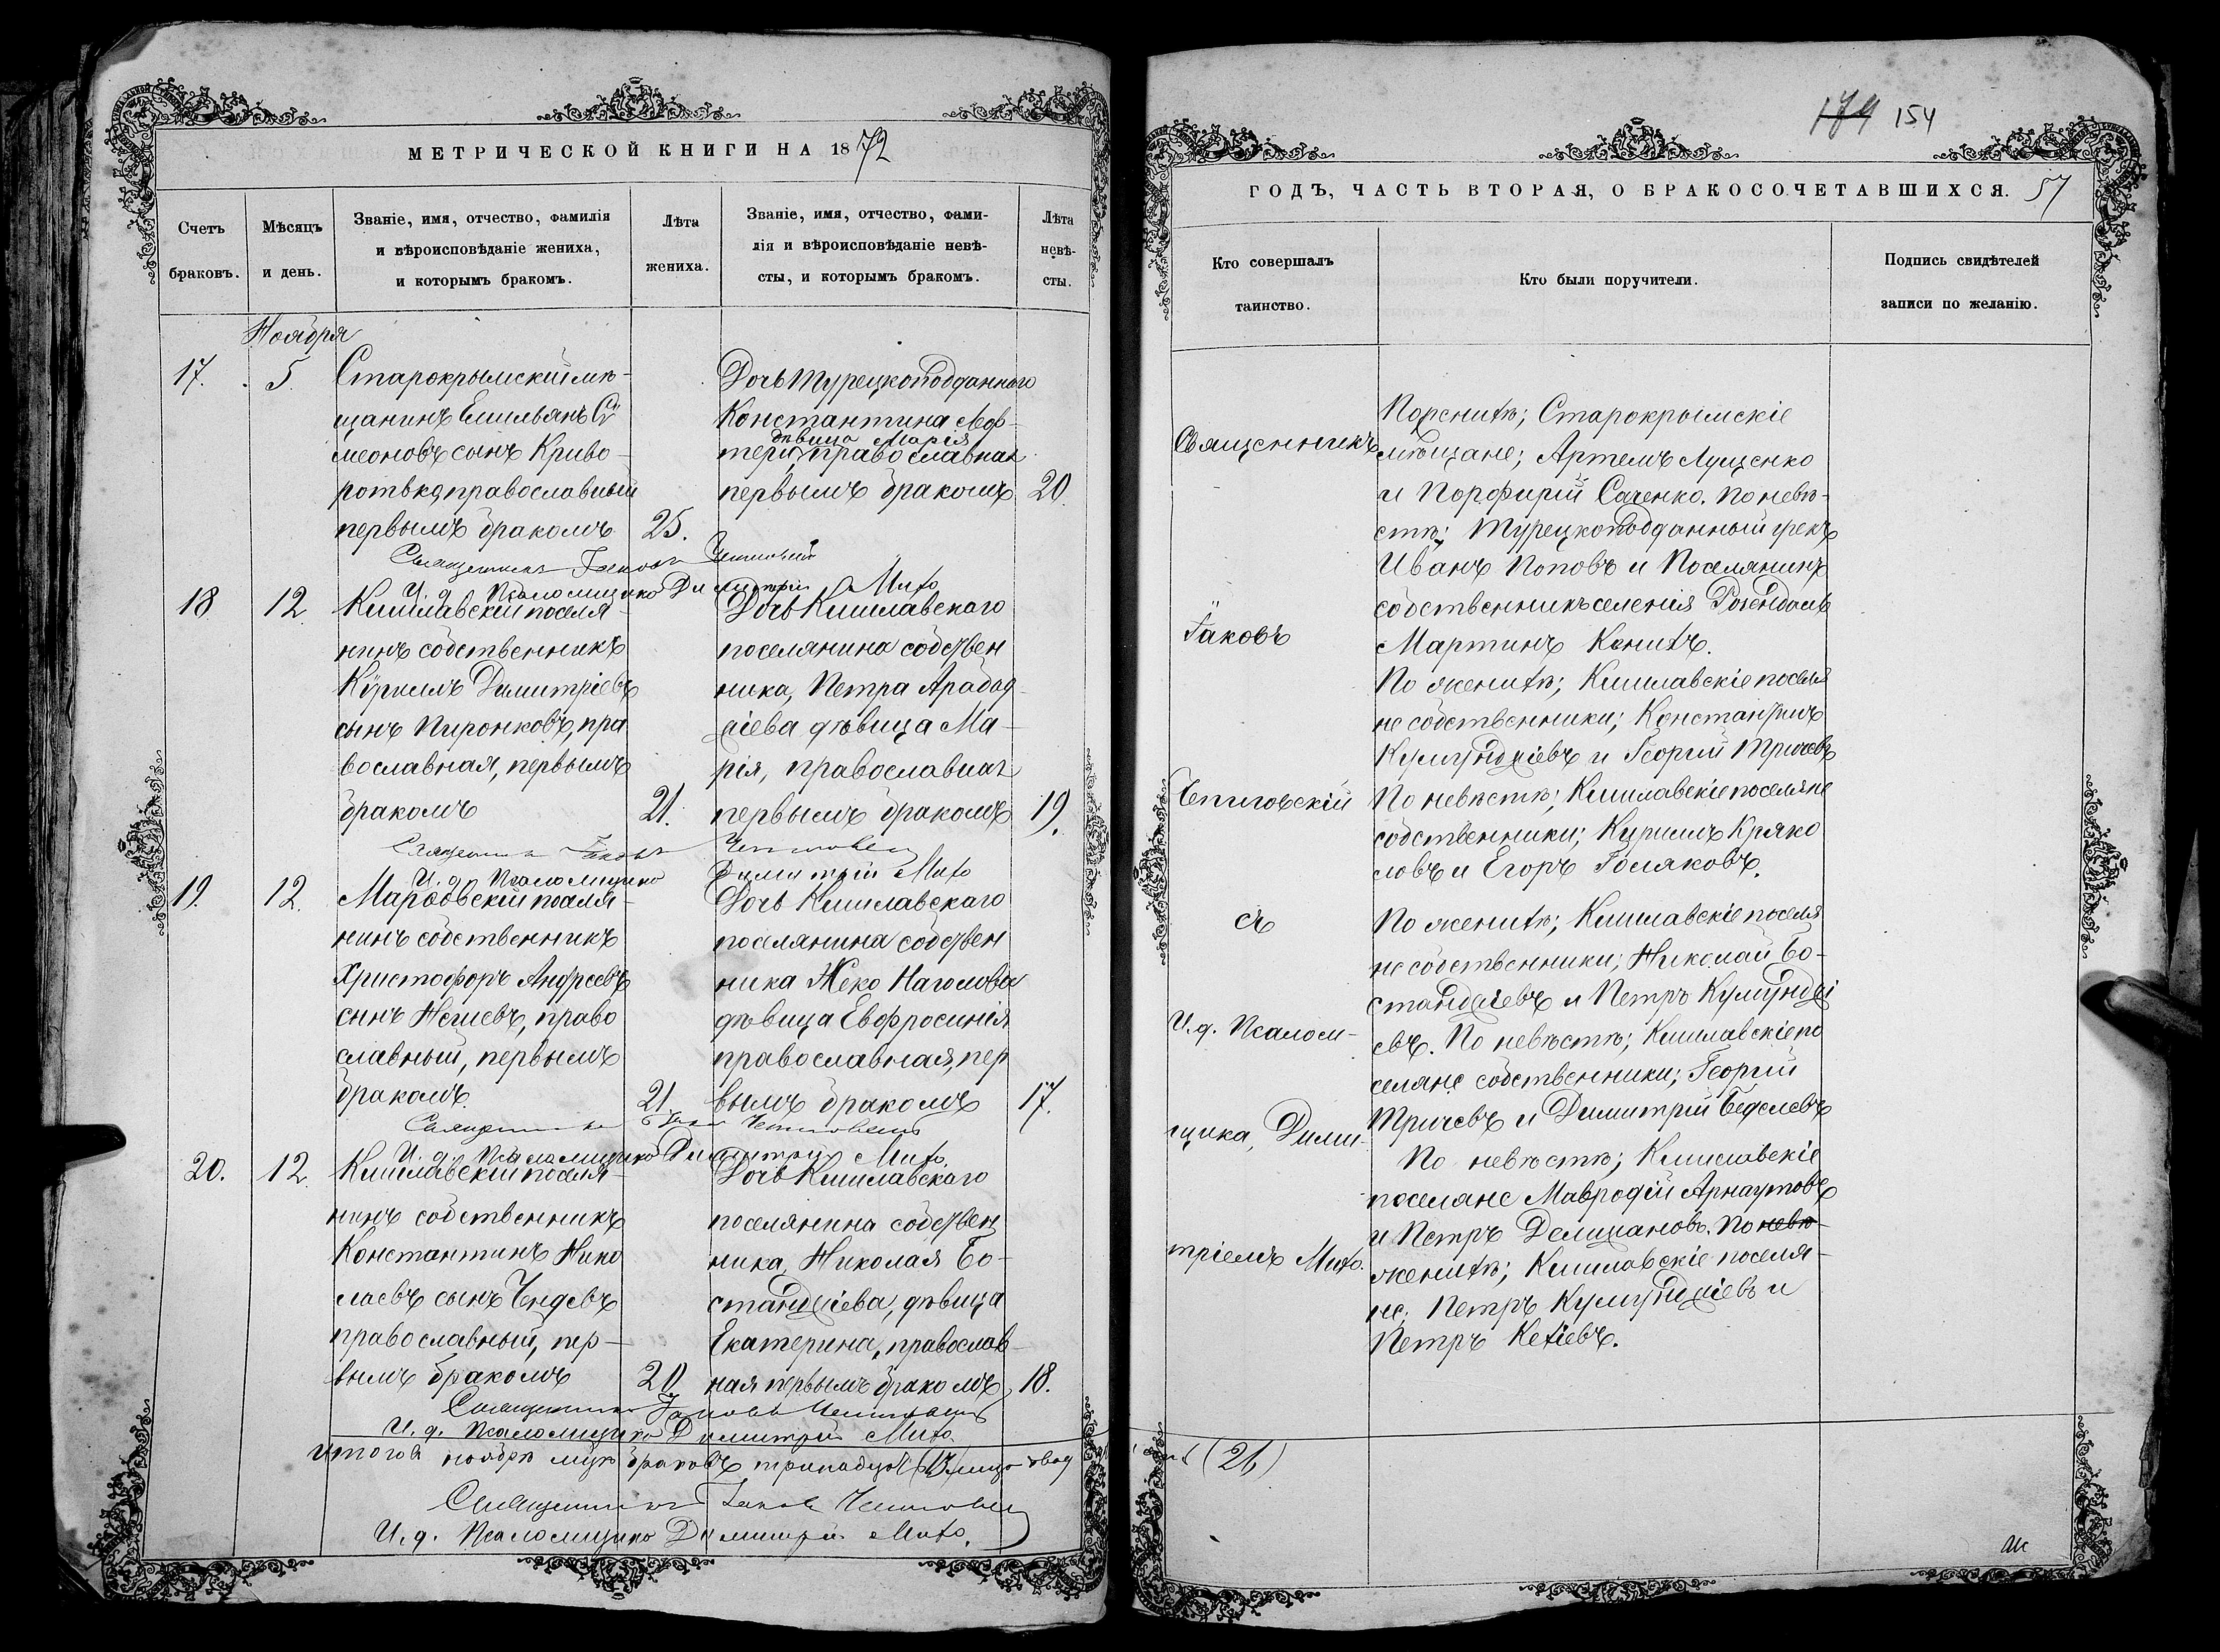 МЕТРИЧЕСКОЙ КНИГИ НА 1872
Счетъ браковъ.
Мѣсяцъ и день.
Званіе, имя, отчество, фамилія
и вѣроисповѣданіе жениха,
и которымъ бракомъ.
Лѣта жениха.
Званіе, имя, отчество, фами-
лія и вѣроисповѣданіе невѣ-
сты, и которымъ бракомъ.
Лѣта невѣ-
сты.
Ноября
17. 5.
Старокрымскій мѣ-
щанинъ Емильянъ Сѵ
меоновъ сынъ Криво-
ротько, православный
первымъ бракомъ 25.
Дочь Турецкоподданнаго
Константина
дѣвица Марія
православная
первымъ бракомъ 20.
Священникъ Іаковъ Чепиговскій
И. д. Псаломщика Димитрій Мито
18 12
Кишлавскій поселя-
нинъ собственникъ
Кѵриллъ Димитріевъ
сынъ Пиронковъ, пра
вославная, первымъ
бракомъ 21.
Дочь Кишлавскаго
поселянина собствен
ника, Петра Арабад-
жіева дѣвица Ма-
рія, православная
первымъ бракомъ 19.
Священникъ Іаковъ Чепиговскій
И. д. Псаломщика Димитрій Мито
19. 12.
поселя-
нинъ собственникъ
Христофоръ Андреевъ
сынъ право
славный, первымъ
бракомъ. 21.
Дочь Кишлавскаго
поселянина собствен
ника Жеко Наголова
дѣвица Евфросинія
православная, пер
вымъ бракомъ 17.
Священникъ Іаковъ Чепиговскій
И. д. Псаломщика Димитрій Мито.
20. 12.
Кишлавскій поселя-
нинъ собственникъ
Константинъ Нико
лаевъ сынъ Чендевъ
православный, пер-
вымъ бракомъ
Дочь Кишлавскаго
поселянина собствен
ника, Николая Бо-
станджіева, дѣвица
Екатерина, православ-
ная первымъ бракомъ 18.
Священникъ Іаковъ Чепиговскій
И. д. Псаломщика Димитрій Мито
ноябрѣ браковъ
Священникъ Іаковъ Чепиговскій
И. д. Псаломщика Димитрій Мито.
154
ГОДЪ, ЧАСТЬ ВТОРАЯ, О БРАКОСОЧЕТАВШИХСЯ. 57
Кто совершалъ
таинство.
Кто были поручители.
Подпись свидѣтелей
записи по желанію.
Священникъ
Іаковъ
Чепиговскій
съ
И. д. Псалом-
щика, Дими-
тріемъ Мито.
По женихѣ; Старокрымскіе
мѣщане; Артемъ Луценко
и Порфирій Саченко. По невѣ-
стѣ; Турецкоподданный грекъ
Иванъ Поповъ и Поселянинъ
собственникъ селенія Розендаль
Мартинъ Кенихъ.
По женихѣ; Кишлавскіе поселя
не собственники; Константинъ
Кумунджіевъ и Георгій Тричевъ
По невѣстѣ; Кишлавскіе поселяне
собственники; Кирилъ Кряко
ловъ и ЕгоръГоляковъ.
По женихѣ; Кишлавскіе поселя
не собственники; Николай Бо-
станджіевъ и Петръ Кумунджі
евъ. По невѣстѣ; Кишлавскіе по
селяне собственники; Георгій
Тричевъ и Димитрій Беделевъ
По невѣстѣ; Кишлавскіе
поселяне Мавродій Арнаутовъ
и Петръ По невѣ-
женихѣ; Кишлавскіе поселя-
не; Петръ Кумунджіевъ и
Петръ Кехіевъ.
(26)